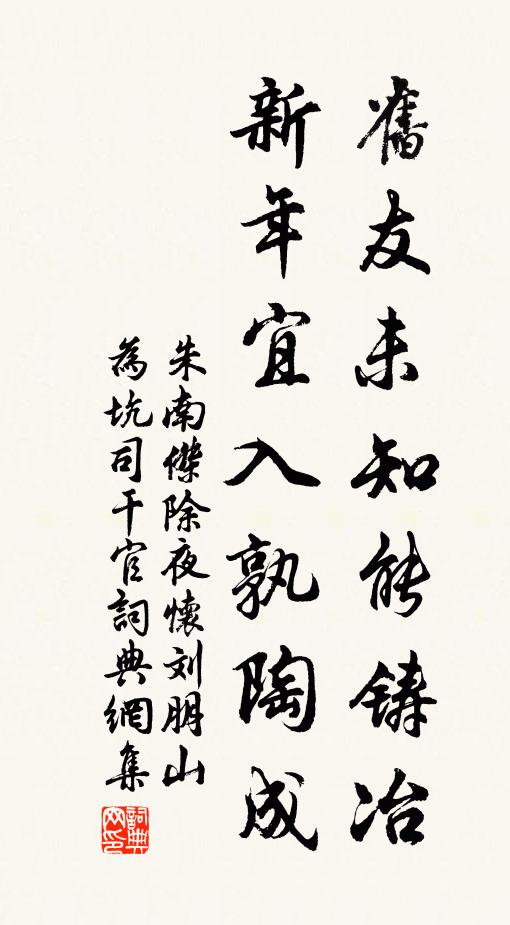 舊友未知能铸冶
新年宜入孰陶成
朱南傑除夜懷刘朋山
為坑司干官詞典網集
詞典网印